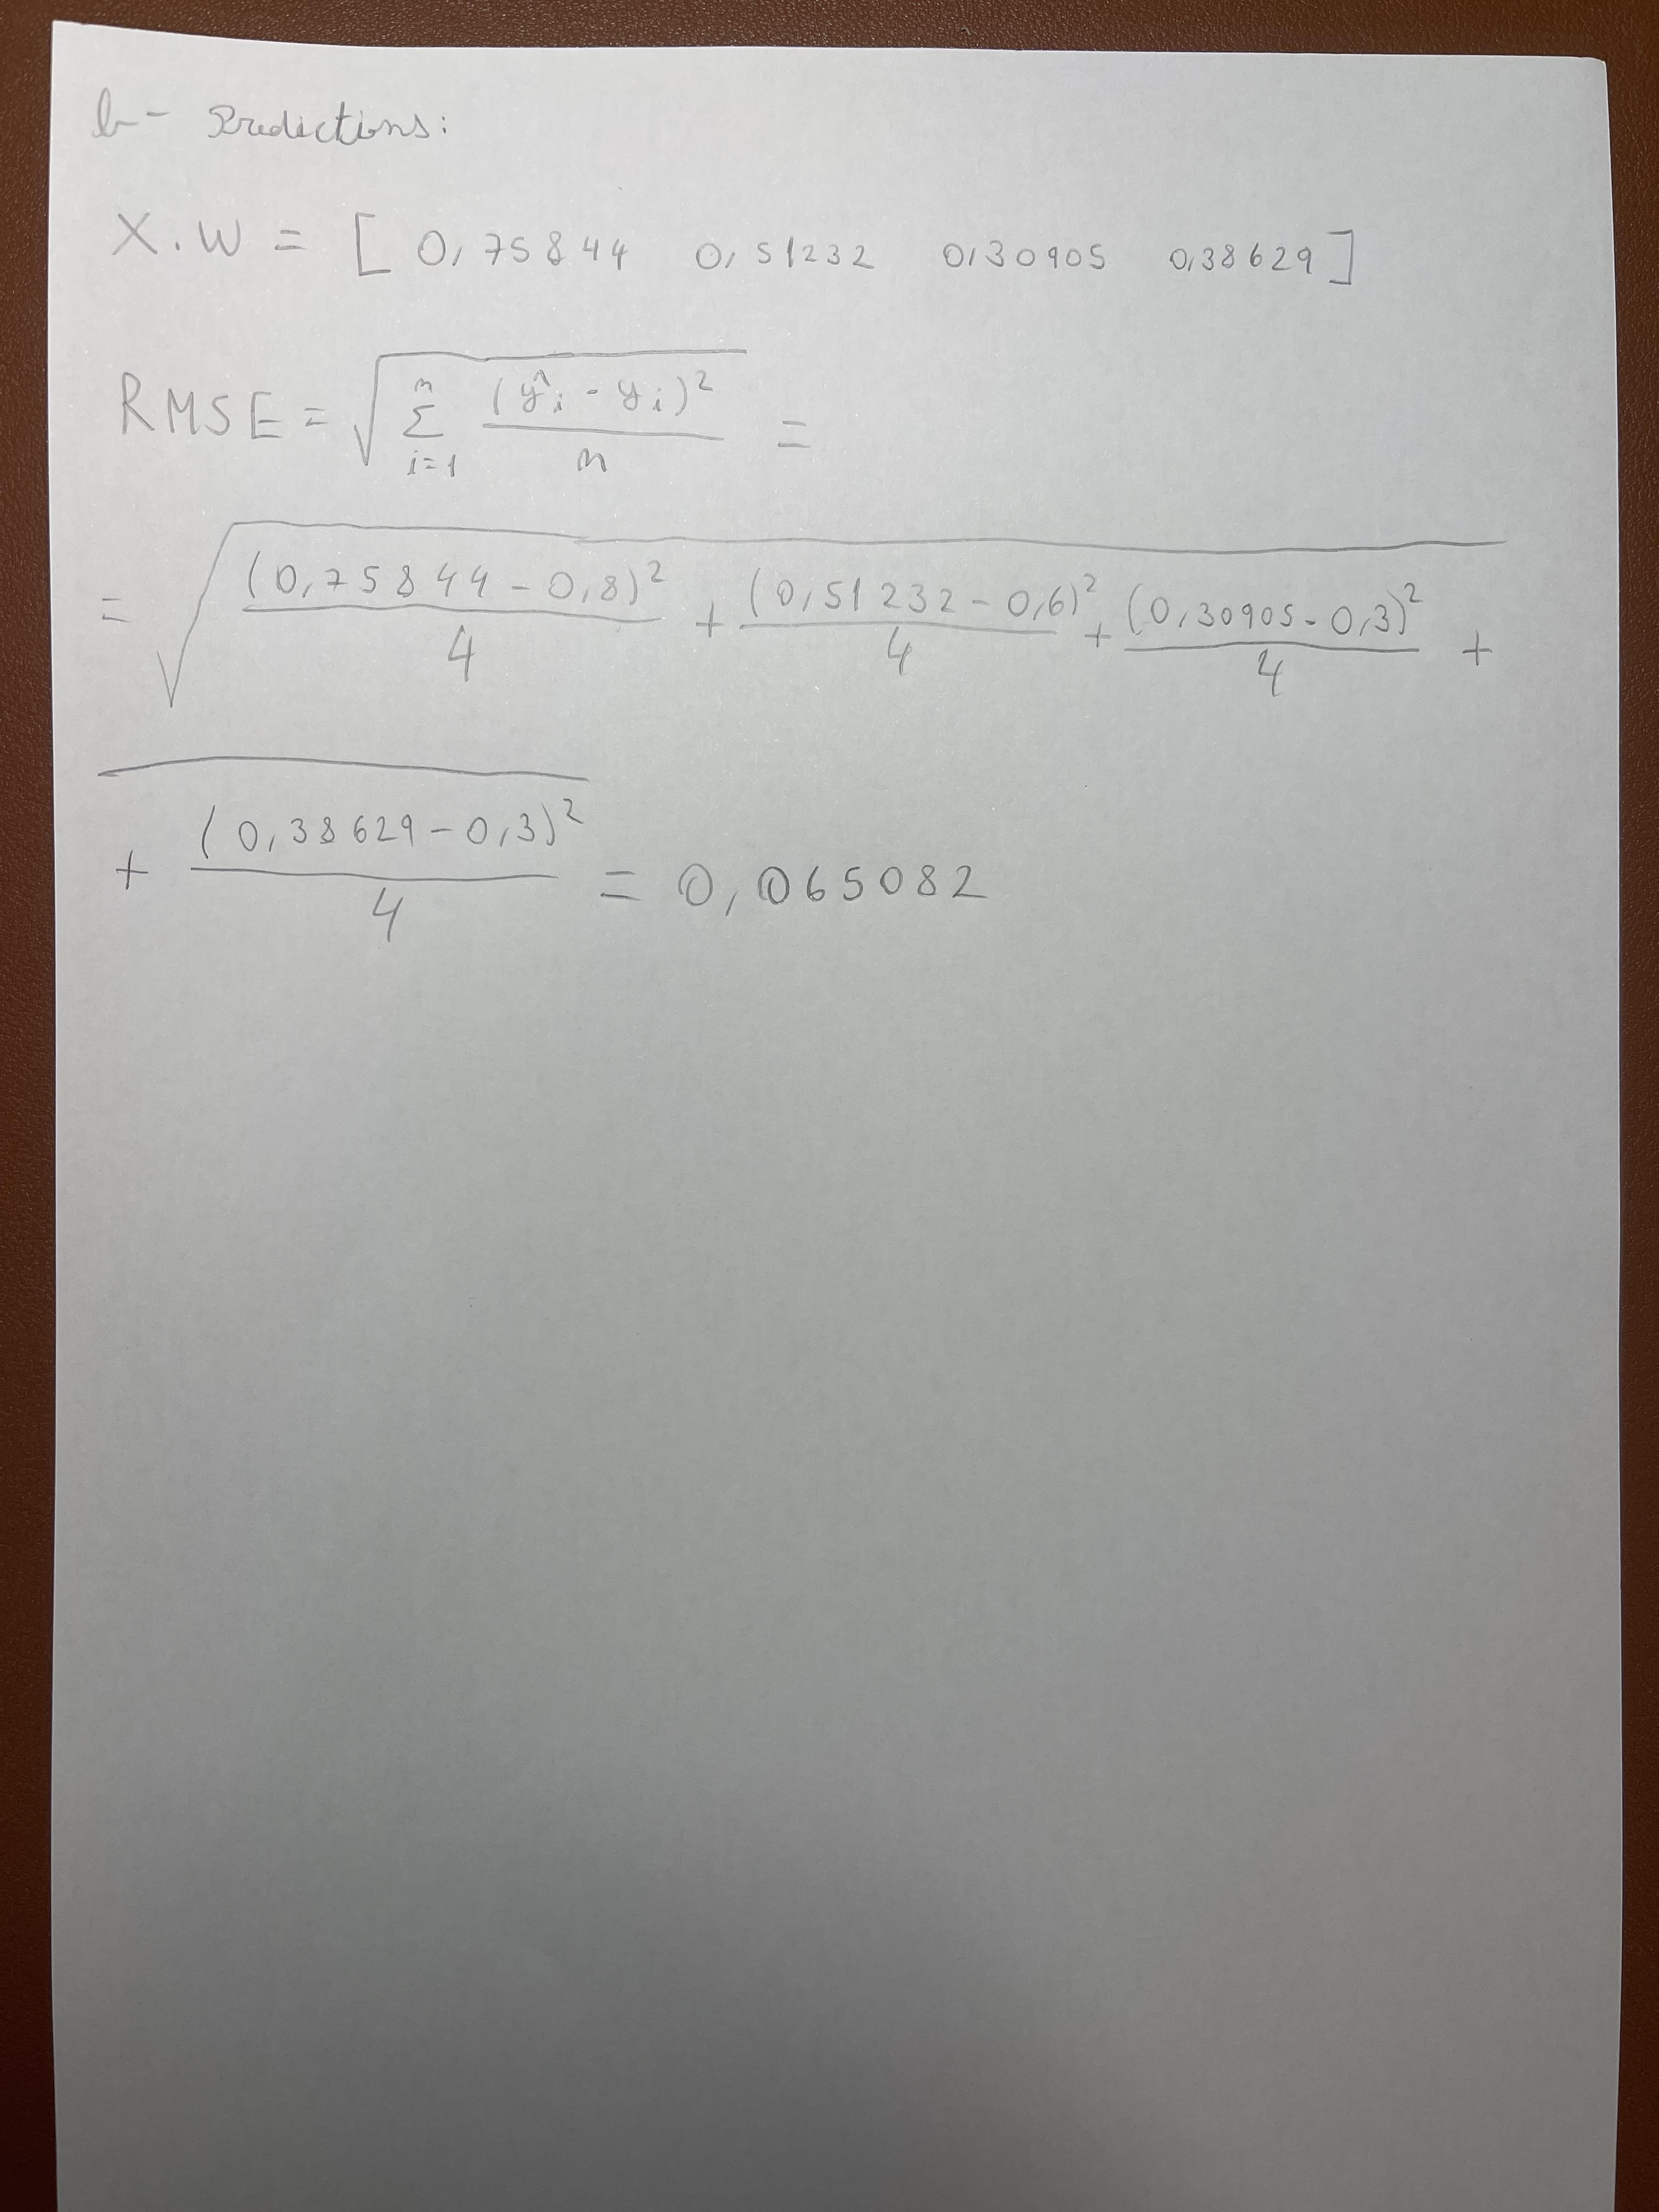 b- Predictions:
X.W = [ 0,75844 0,51232 0,30905 0,38629 ]
RMSE = √( Σ_{i=1}^{n} (ŷ_i - y_i)² / n ) =
= √( (0,75844 - 0,8)² / 4 + (0,51232 - 0,6)² / 4 + (0,30905 - 0,3)² / 4 +
+ (0,38629 - 0,3)² / 4 ) = 0,065082